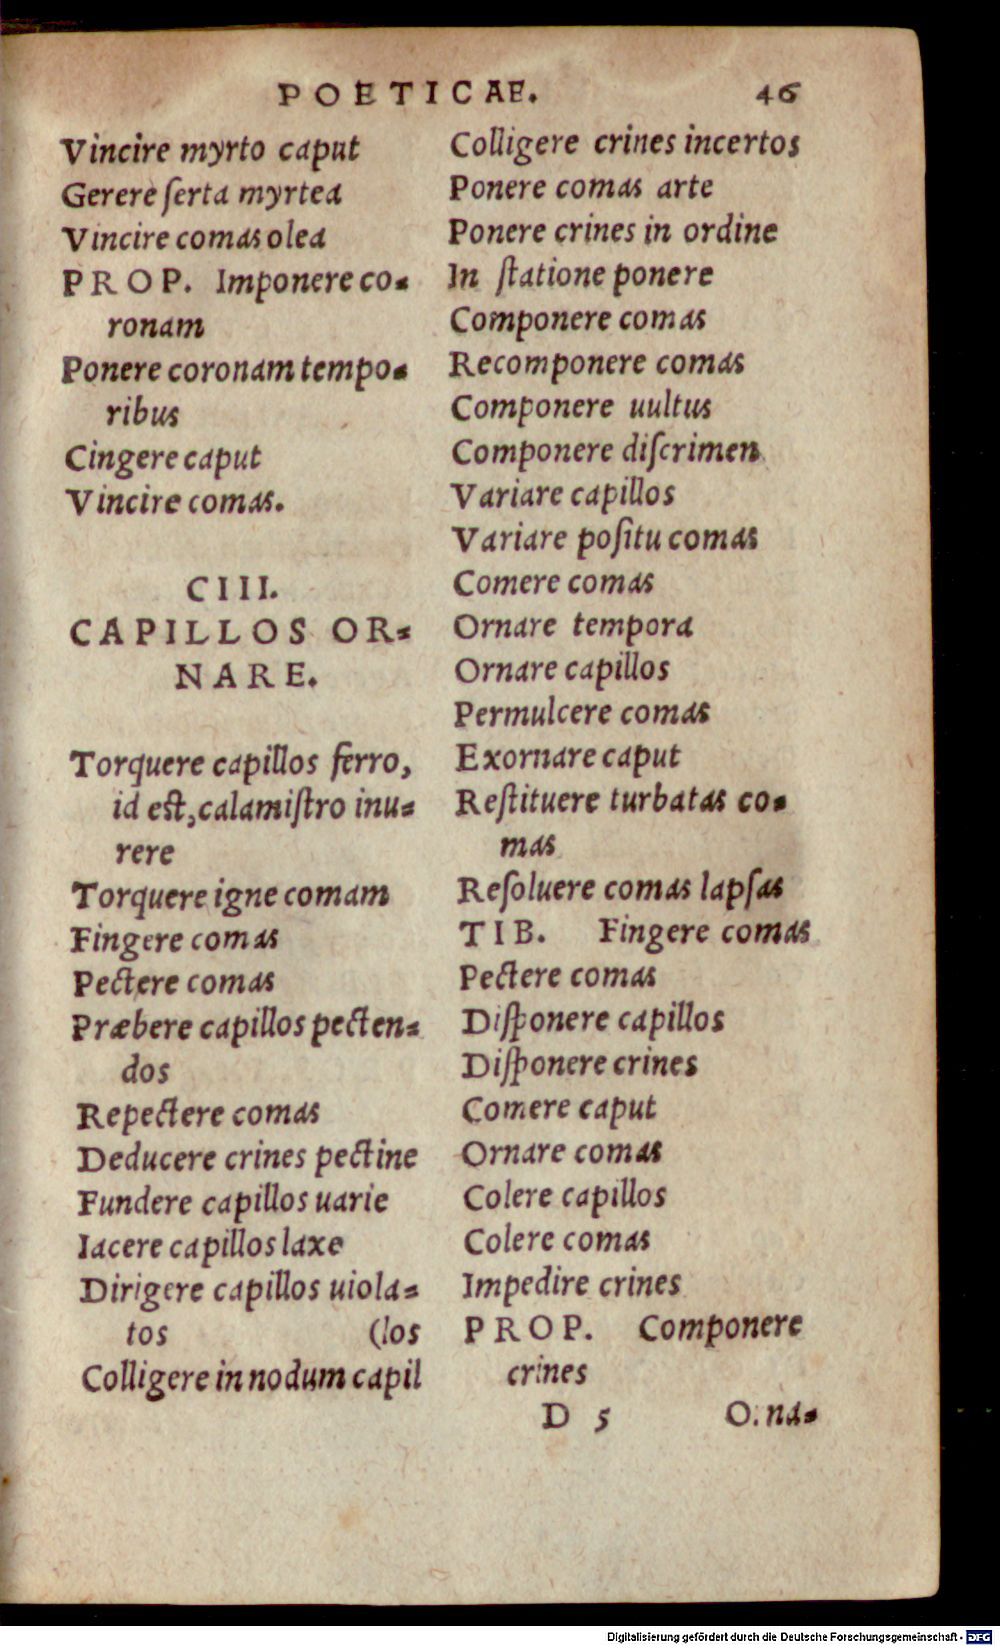 POETICAE. 46
Vincire myrto caput
Gerere ſerta myrtea
Vincire comas olea
PROP. Imponere co-
ronam
Ponere coronam tempo-
ribus
Cingere caput
Vincire comas.
CIII.
CAPILLOS OR-
NARE.
Torquere capillos ferro,
id est, calamiſtro inu-
rere
Torquere igne comam
Fingere comas
Pectere comas
Præbere capillos pecten-
dos
Repectere comas
Deducere crines pectine
Fundere capillos uarie
Iacere capillos laxe
Dirigere capillos uiola-
tos (los
Colligere in nodum capil
Colligere crines incertos
Ponere comas arte
Ponere crines in ordine
In ſtatione ponere
Componere comas
Recomponere comas
Componere uultus
Componere diſcrimen
Variare capillos
Variare poſitu comas
Comere comas
Ornare tempora
Ornare capillos
Permulcere comas
Exornare caput
Reſtituere turbatas co-
mas
Reſoluere comas lapſas
TIB. Fingere comas
Pectere comas
Diſponere capillos
Diſponere crines
Comere caput
Ornare comas
Colere capillos
Colere comas
Impedire crines
PROP. Componere
crines
D 5 Orna-
Digitalisierung gefördert durch die Deutsche Forschungsgemeinschaft - DFG